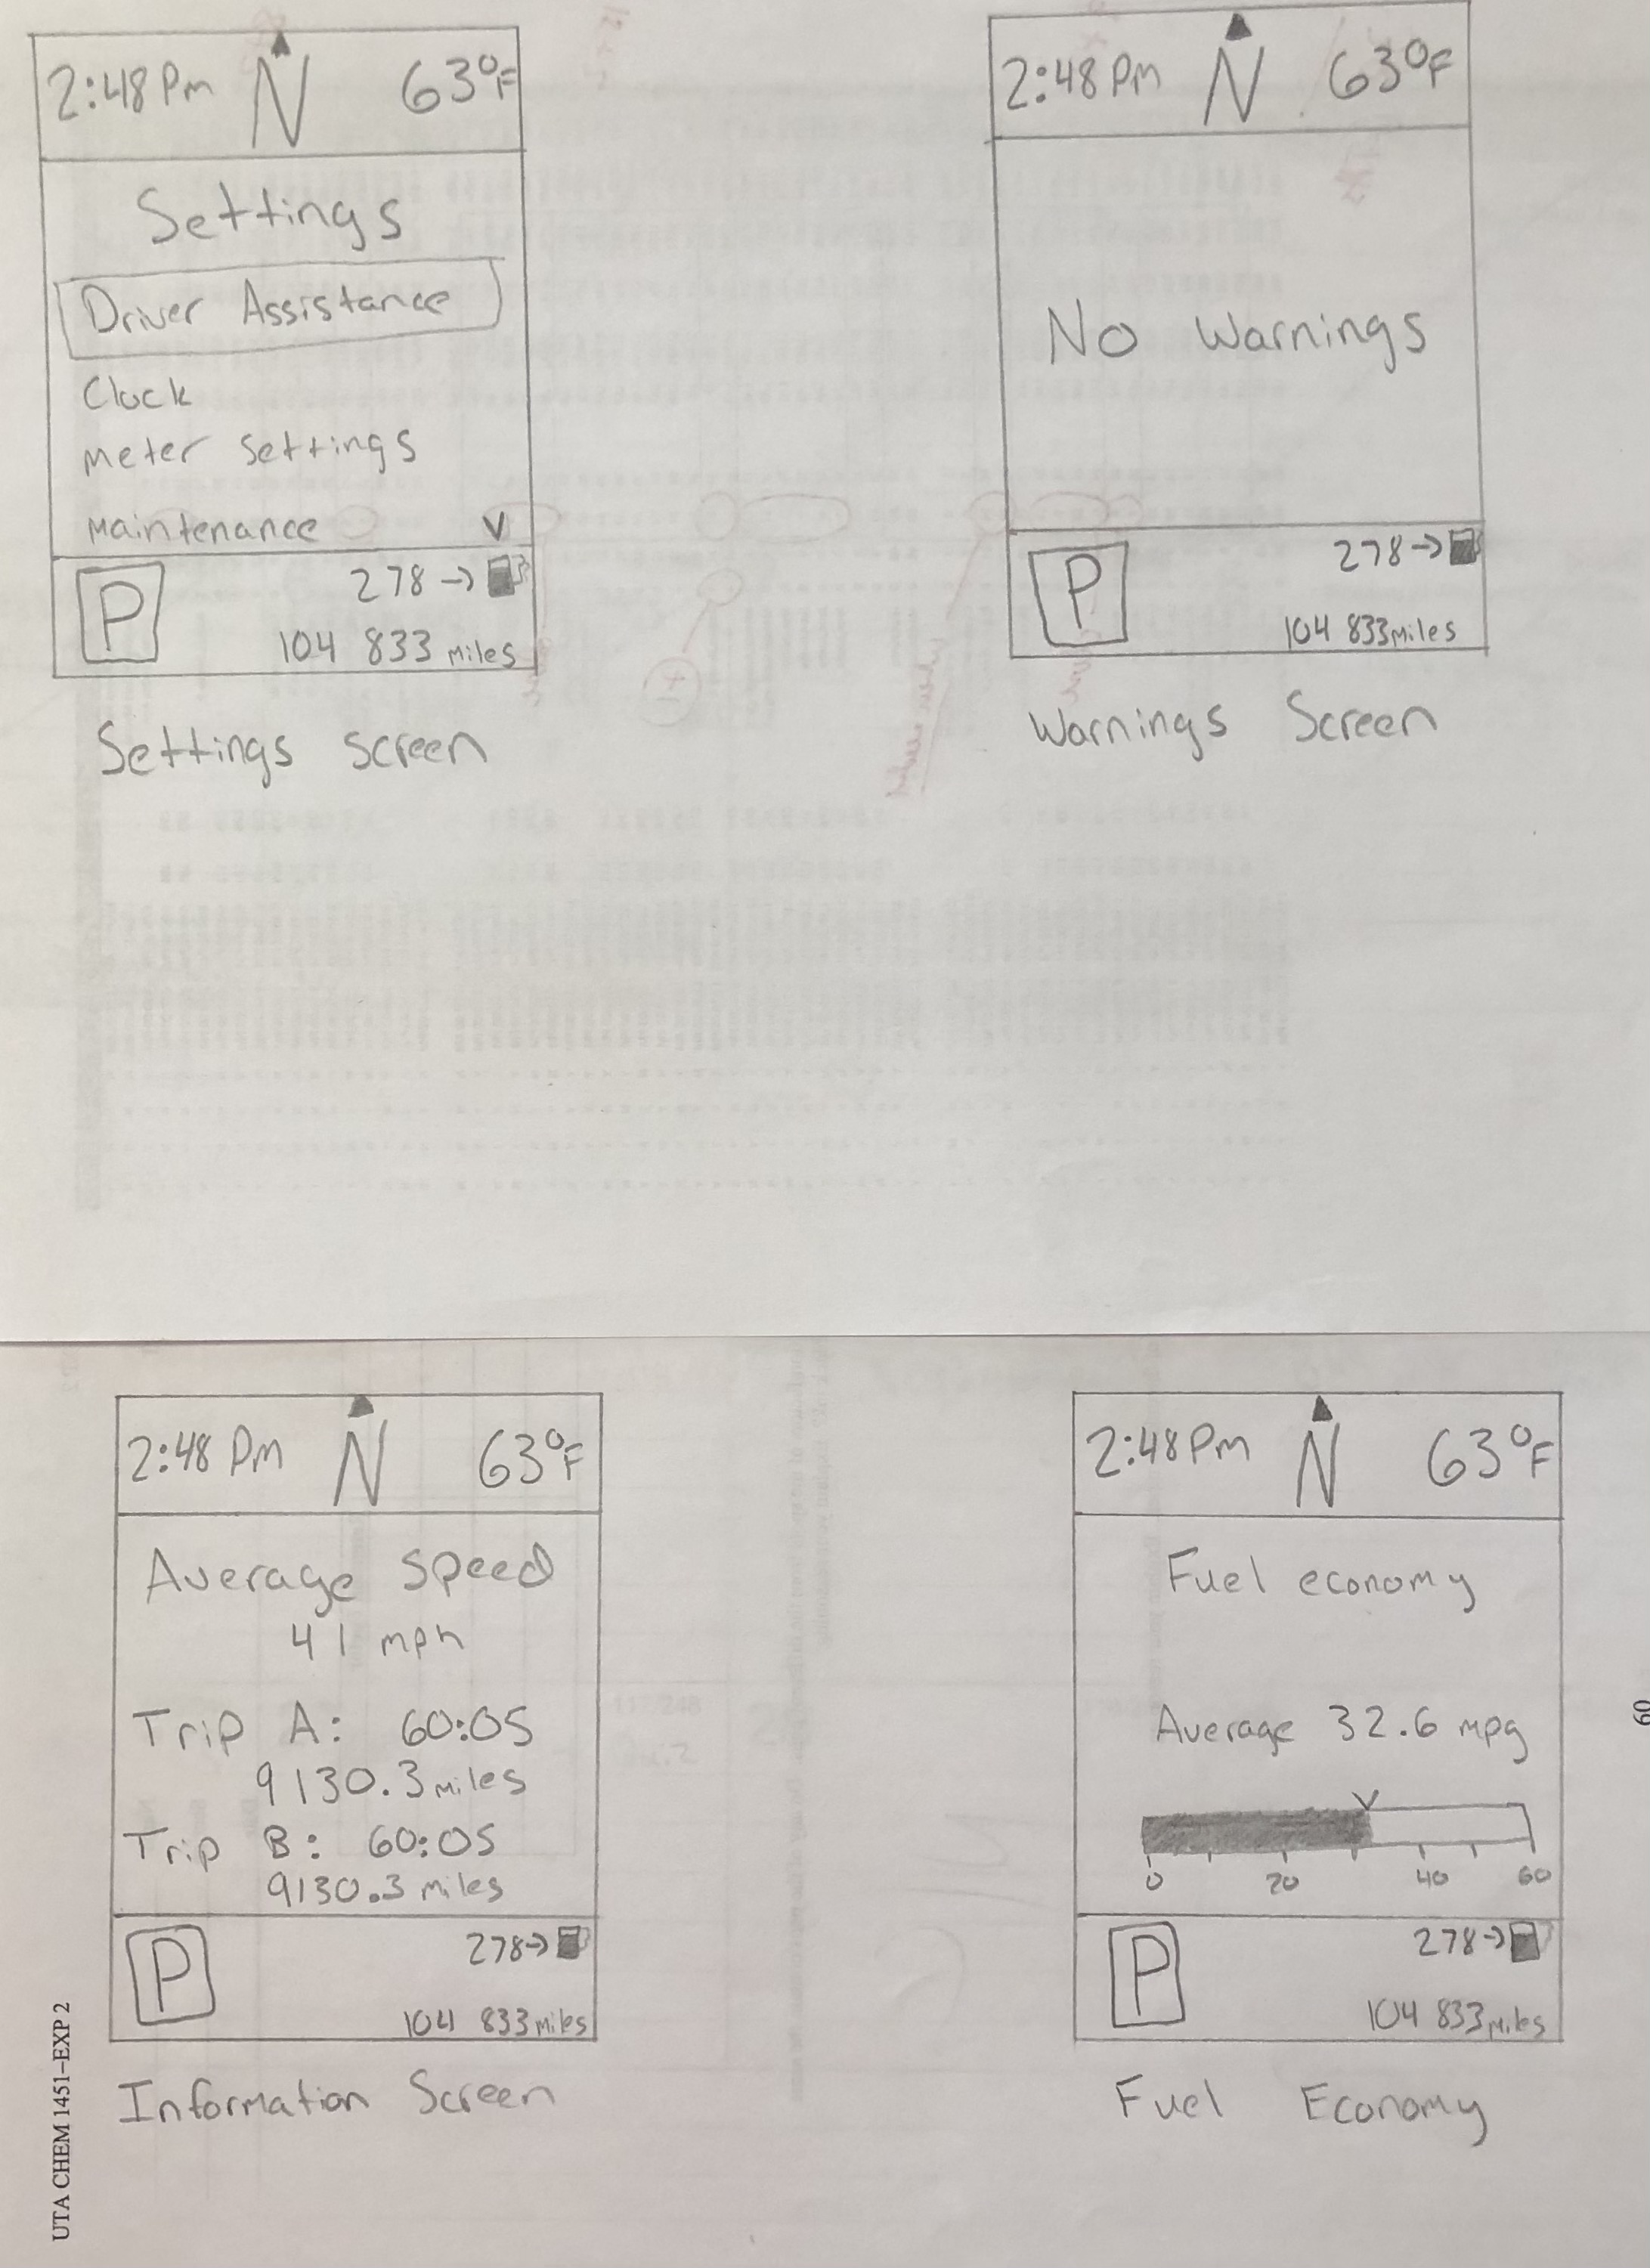 2:48 Pm N 63°F
Settings
Driver Assistance
Clock
Meter Settings
Maintenance
P
278→
104 833 miles
Settings Screen
2:48 Pm N 63°F
No Warnings
P
278→
104 833 miles
Warnings Screen
2:48 Pm N 63°F
Average Speed
41 mph
Trip A: 60:05
9130.3 miles
Trip B: 60:05
9130.3 miles
P
278→
104 833 miles
Information Screen
2:48 Pm N 63°F
Fuel economy
Average 32.6 mpg
0 20 40 60
P
278→
104 833 miles
Fuel Economy
UTA CHEM 1451–EXP 2
60